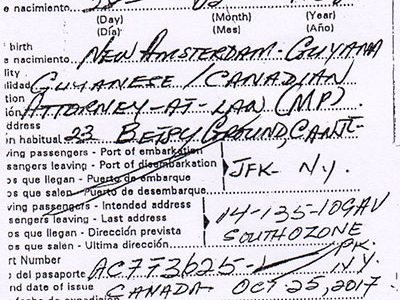 e nacimiento
(Day) (Month) (Year)
(Día) (Mes) (Año)
birth
e nacimiento NEW AMSTERDAM - GUYANA
lity
lidad GUYANESE / CANADIAN
tion
ción ATTORNEY-AT-LAW (MP)
address
ón habitual 23 BETSY GROUND, CANJE
ving passengers - Port of embarkation
sengers leaving - Port of disembarkation
os que llegan - Puerto de embarque JFK - N.Y.
os que salen - Puerto de desembarque
ving passengers - Intended address
sengers leaving - Last address 14-135-109AV
os que llegan - Dirección prevista SOUTH OZONE
os que salen - Ultima dirección PK.
ort Number N.Y.
o del pasaporte AC773625
nd date of issue
CANADA OCT 25, 2017